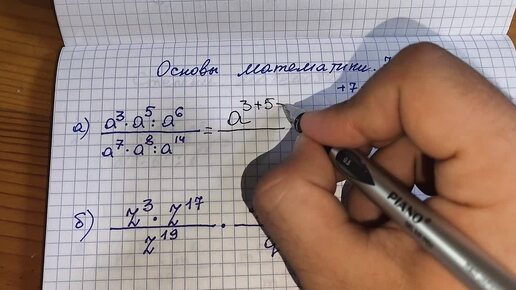 Основы математики. 7
+7
а) a³ · a⁵ : a⁶ / a⁷ · a⁸ : a¹⁴ = a³⁺⁵⁻
б) z³ · z¹⁷ / z¹⁹ ·
PIANO